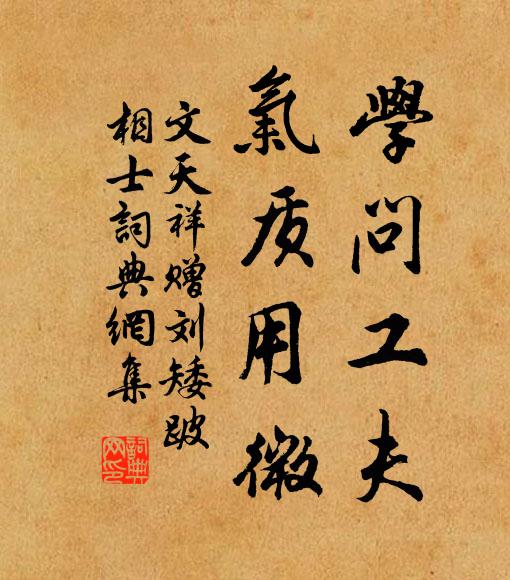 學問工夫
氣质用微
文天祥赠刘矮跛
相士詞典網集